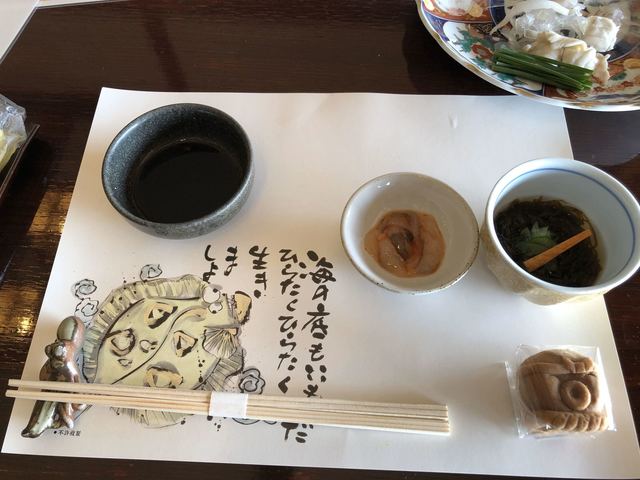 海の底もいいもんだ
ひらたくひらたく
生き
ましょ
●不許複製